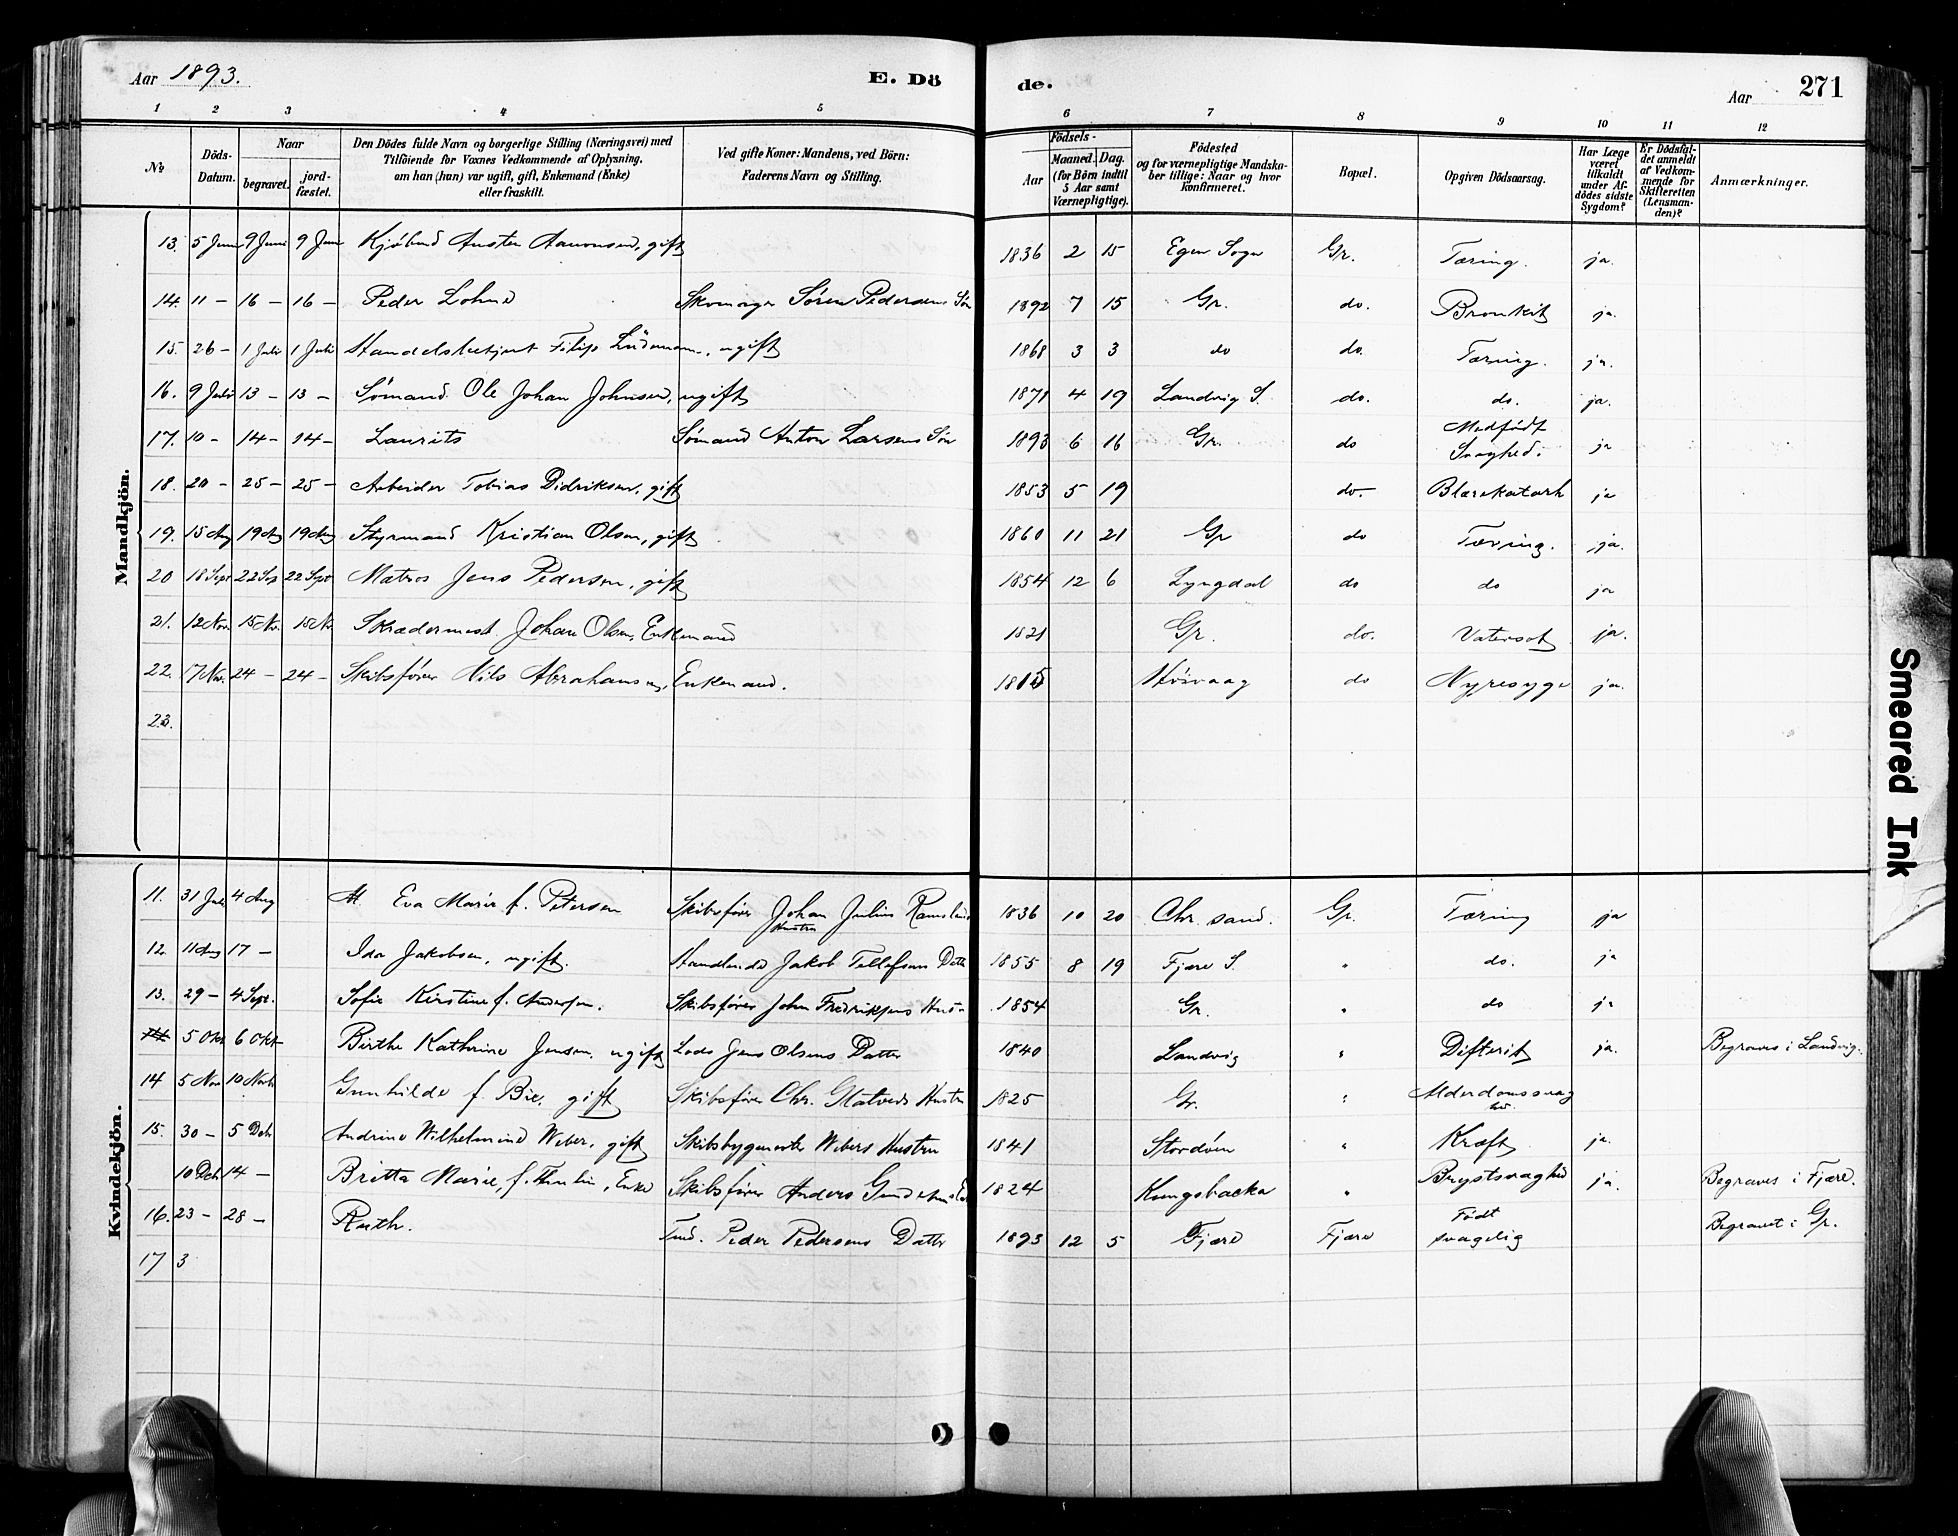 Aar 1893.
E. Dö
de.
Aar
271
1 2 3 4 5 6 7 8 9 10 11 12
No.
Döds-Datum.
Naar
begravet.
jord-fæstet.
Den Dödes fulde Navn og borgerlige Stilling (Næringsvei) med
Tilföiende for Voxnes Vedkommende af Oplysning,
om han (hun) var ugift, gift, Enkemand (Enke)
eller fraskilt.
Ved gifte Koner: Mandens, ved Börn:
Faderens Navn og Stilling.
Födsels-
Aar
Maaned. Dag.
(for Börn indtil
5 Aar samt
Værnepligtige).
Födested
og for værnepligtige Mandska-
ber tillige: Naar og hvor
konfirmeret.
Bopæl.
Opgiven Dödsaarsag.
Har Læge
været
tilkaldt
under Af-
dödes sidste
Sygdom?
Er Dödsfal-
det anmeldt
af Vedkom-
mende for
Skifteretten
(Lensman-
den)?
Anmærkninger.
Mandkjön.
13. 5 Juni 9 Juni 9 Juni Austen Aanonsen, gift 1836 2 15 Egen Sogn Gr. Tæring. ja.
14. 11 – 16 – 16 – Peder Lohne Skomager Søren Pedersens Søn 1892 7 15 Gr. do. Bronkit ja.
15. 26 – 1 Juli 1 Juli Handelsbetjent Filip Lüdemann, ugift 1868 3 3 do do. Tæring. ja.
16. 9 Juli 13 – 13 – Sømand Ole Johan Johnsen, ugift 1871 4 19 Landvig S. do. do. ja.
17. 10 – 14 – 14 – Laurits Sømand Anton Larsens Søn 1893 6 16 Gr. do Medfødt Svaghed. ja
18. 20 – 25 – 25 – Arbeider Tobias Didriksen, gift 1853 5 19 do. Blærekatarh ja
19. 15 Aug 19 Aug 19 Aug Styrmand Kristian Olsen, gift 1860 11 21 Gr do Tæring. ja.
20 18 Sept 22 Sep 22 Sept Matros Jens Pedersen, gift 1854 12 6 Lyngdal do do ja
21. 12 Nov. 15 Nv. 15 Nv. Skrædermest. Johan Olsen, Enkemand 1821 Gr. do. Vatersot ja.
22. 17 Nv. 24 – 24 – Skibsfører Nils Abrahamsen, Enkemand. 1815 Høivaag do Nyresyge ja.
23.
Kvindekjön.
11. 31 Juli 4 Aug Eva Marie f. Petersen Skibsfører Johan Julius Hustru 1836 10 20 Chr. sand. Gr. Tæring ja
12. 11 Aug 17 – Ida Jakobsen, ugift. Handlende Jakob Tellefsens Datter 1855 8 19 Fjære S. " do. ja
13. 29 – 4 Sept. Sofie Kirstine f. Andersen. Skibsfører John Fredriksens Hust– 1854 Gr. " do ja
14 5 Okt 6 Okt Birthe Kathrine Jensen, ugift Lods Jens Olsens Datter 1840 Landvig " Difterit ja. Begraves i Landvig.
14 5 Nov 10 Novb Gunhilde f. Bie, gift Skibsfører Chr. Hustru 1825 Gr. " Alderdomssvaghed.
15. 30 – 5 Dcb Andrine Wilhelmine Weber, gift Skibsbygmester Webers Hustru 1841 Stordøen " Kræft ja.
10 Dcb 14 – Britta Marie, f. Thulin, Enke Skibsfører Anders 1824 Kungsbacka " Brystsvaghed ja. Begraves i Fjære.
16. 23 – 28 – Ruth. Tml. Peder Pedersens Datter 1893 12 5 Fjære Fjære Født svagelig Begravet i Gr.
17 3
Smeared Ink